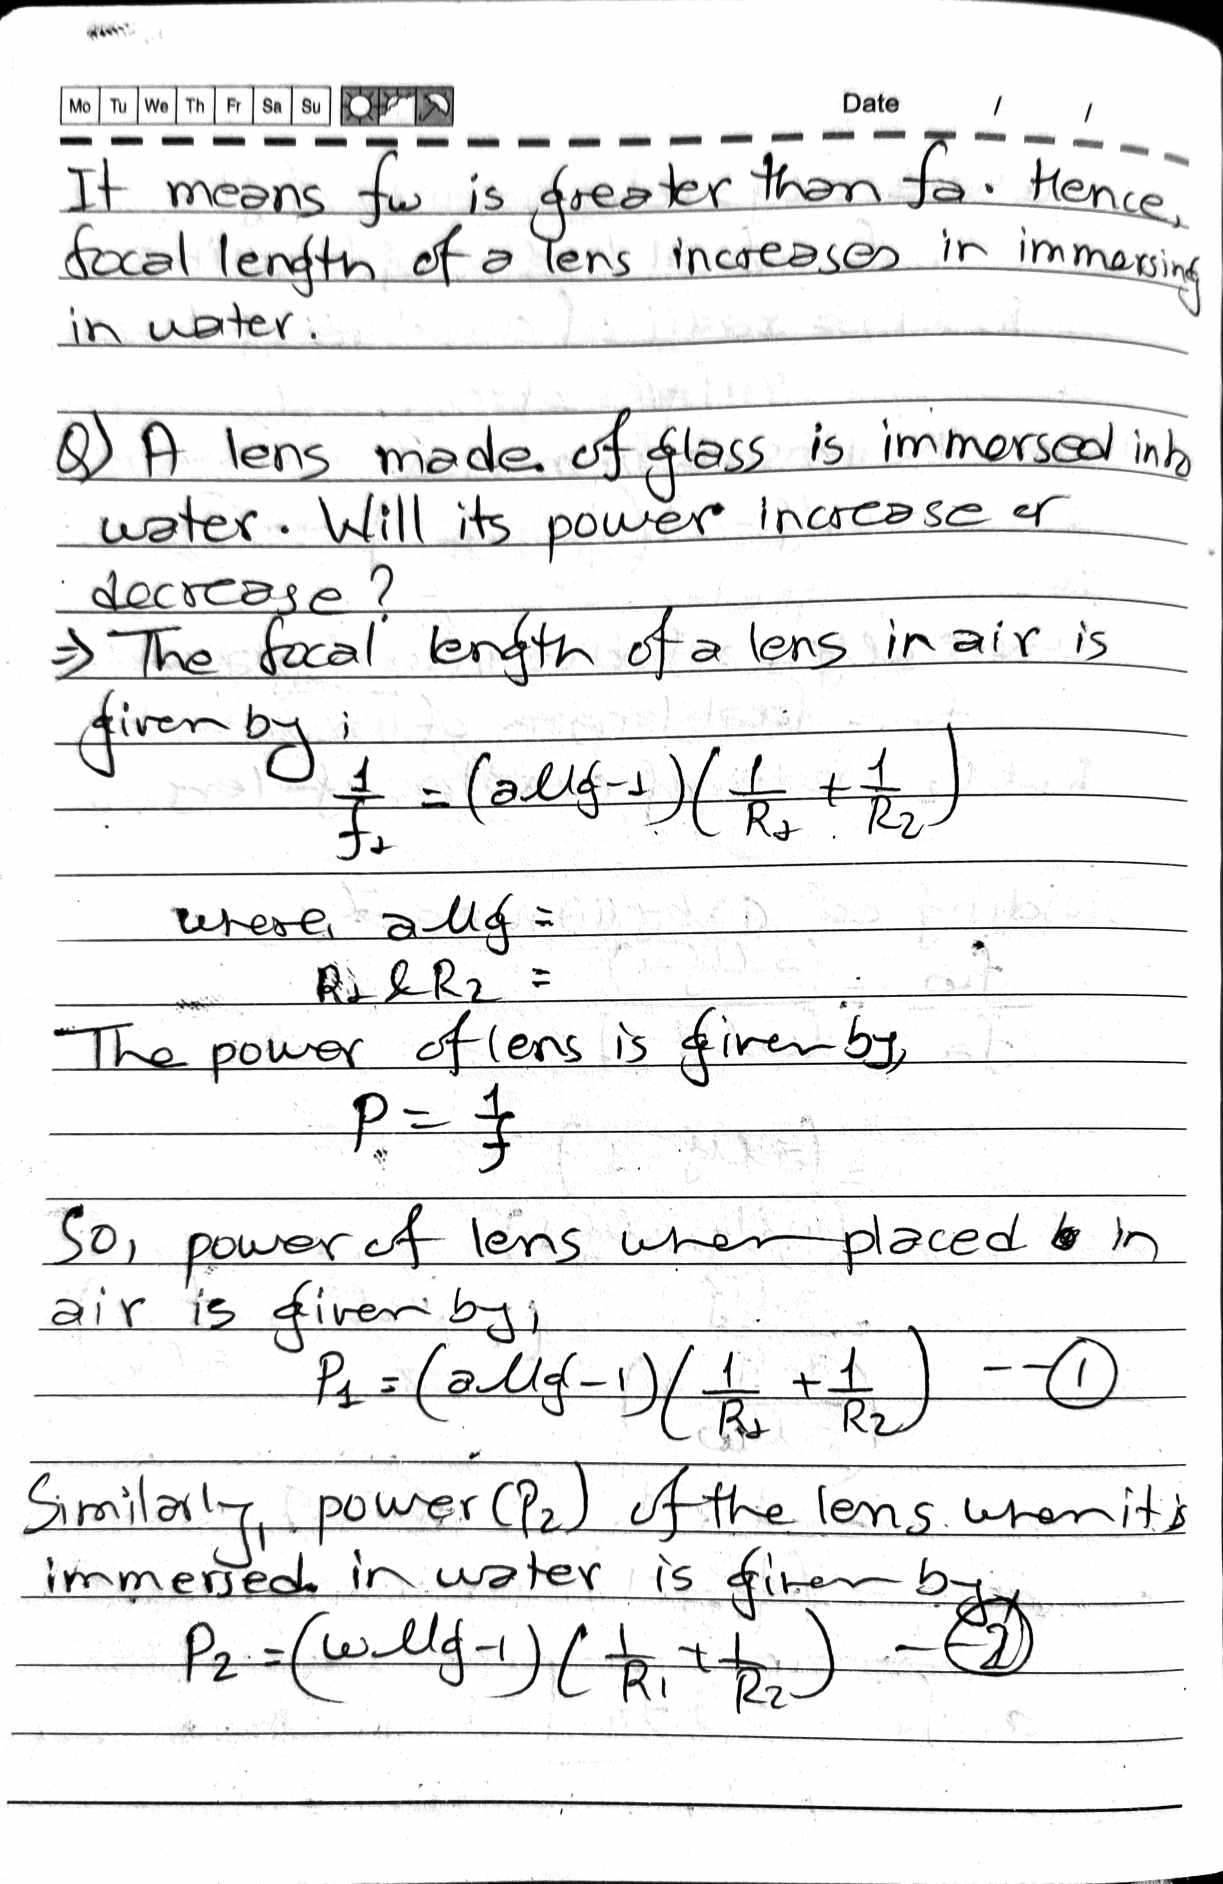 Mo Tu We Th Fr Sa Su Date / /
It means fw is greater than fa. Hence,
focal length of a lens increases in immersing
in water.
Q) A lens made of glass is immersed into
water. Will its power increase or
decrease?
⇒ The focal length of a lens in air is
given by;
1/f₁ = (aμg-1)(1/R₁ + 1/R₂)
where, aμg =
R₁ & R₂ =
The power of lens is given by,
P = 1/f
So, power of lens when placed in
air is given by;
P₁ = (aμg-1)(1/R₁ + 1/R₂) --①
Similarly, power (P₂) of the lens when it is
immersed in water is given by,
P₂ = (wμg-1)(1/R₁ + 1/R₂) --②